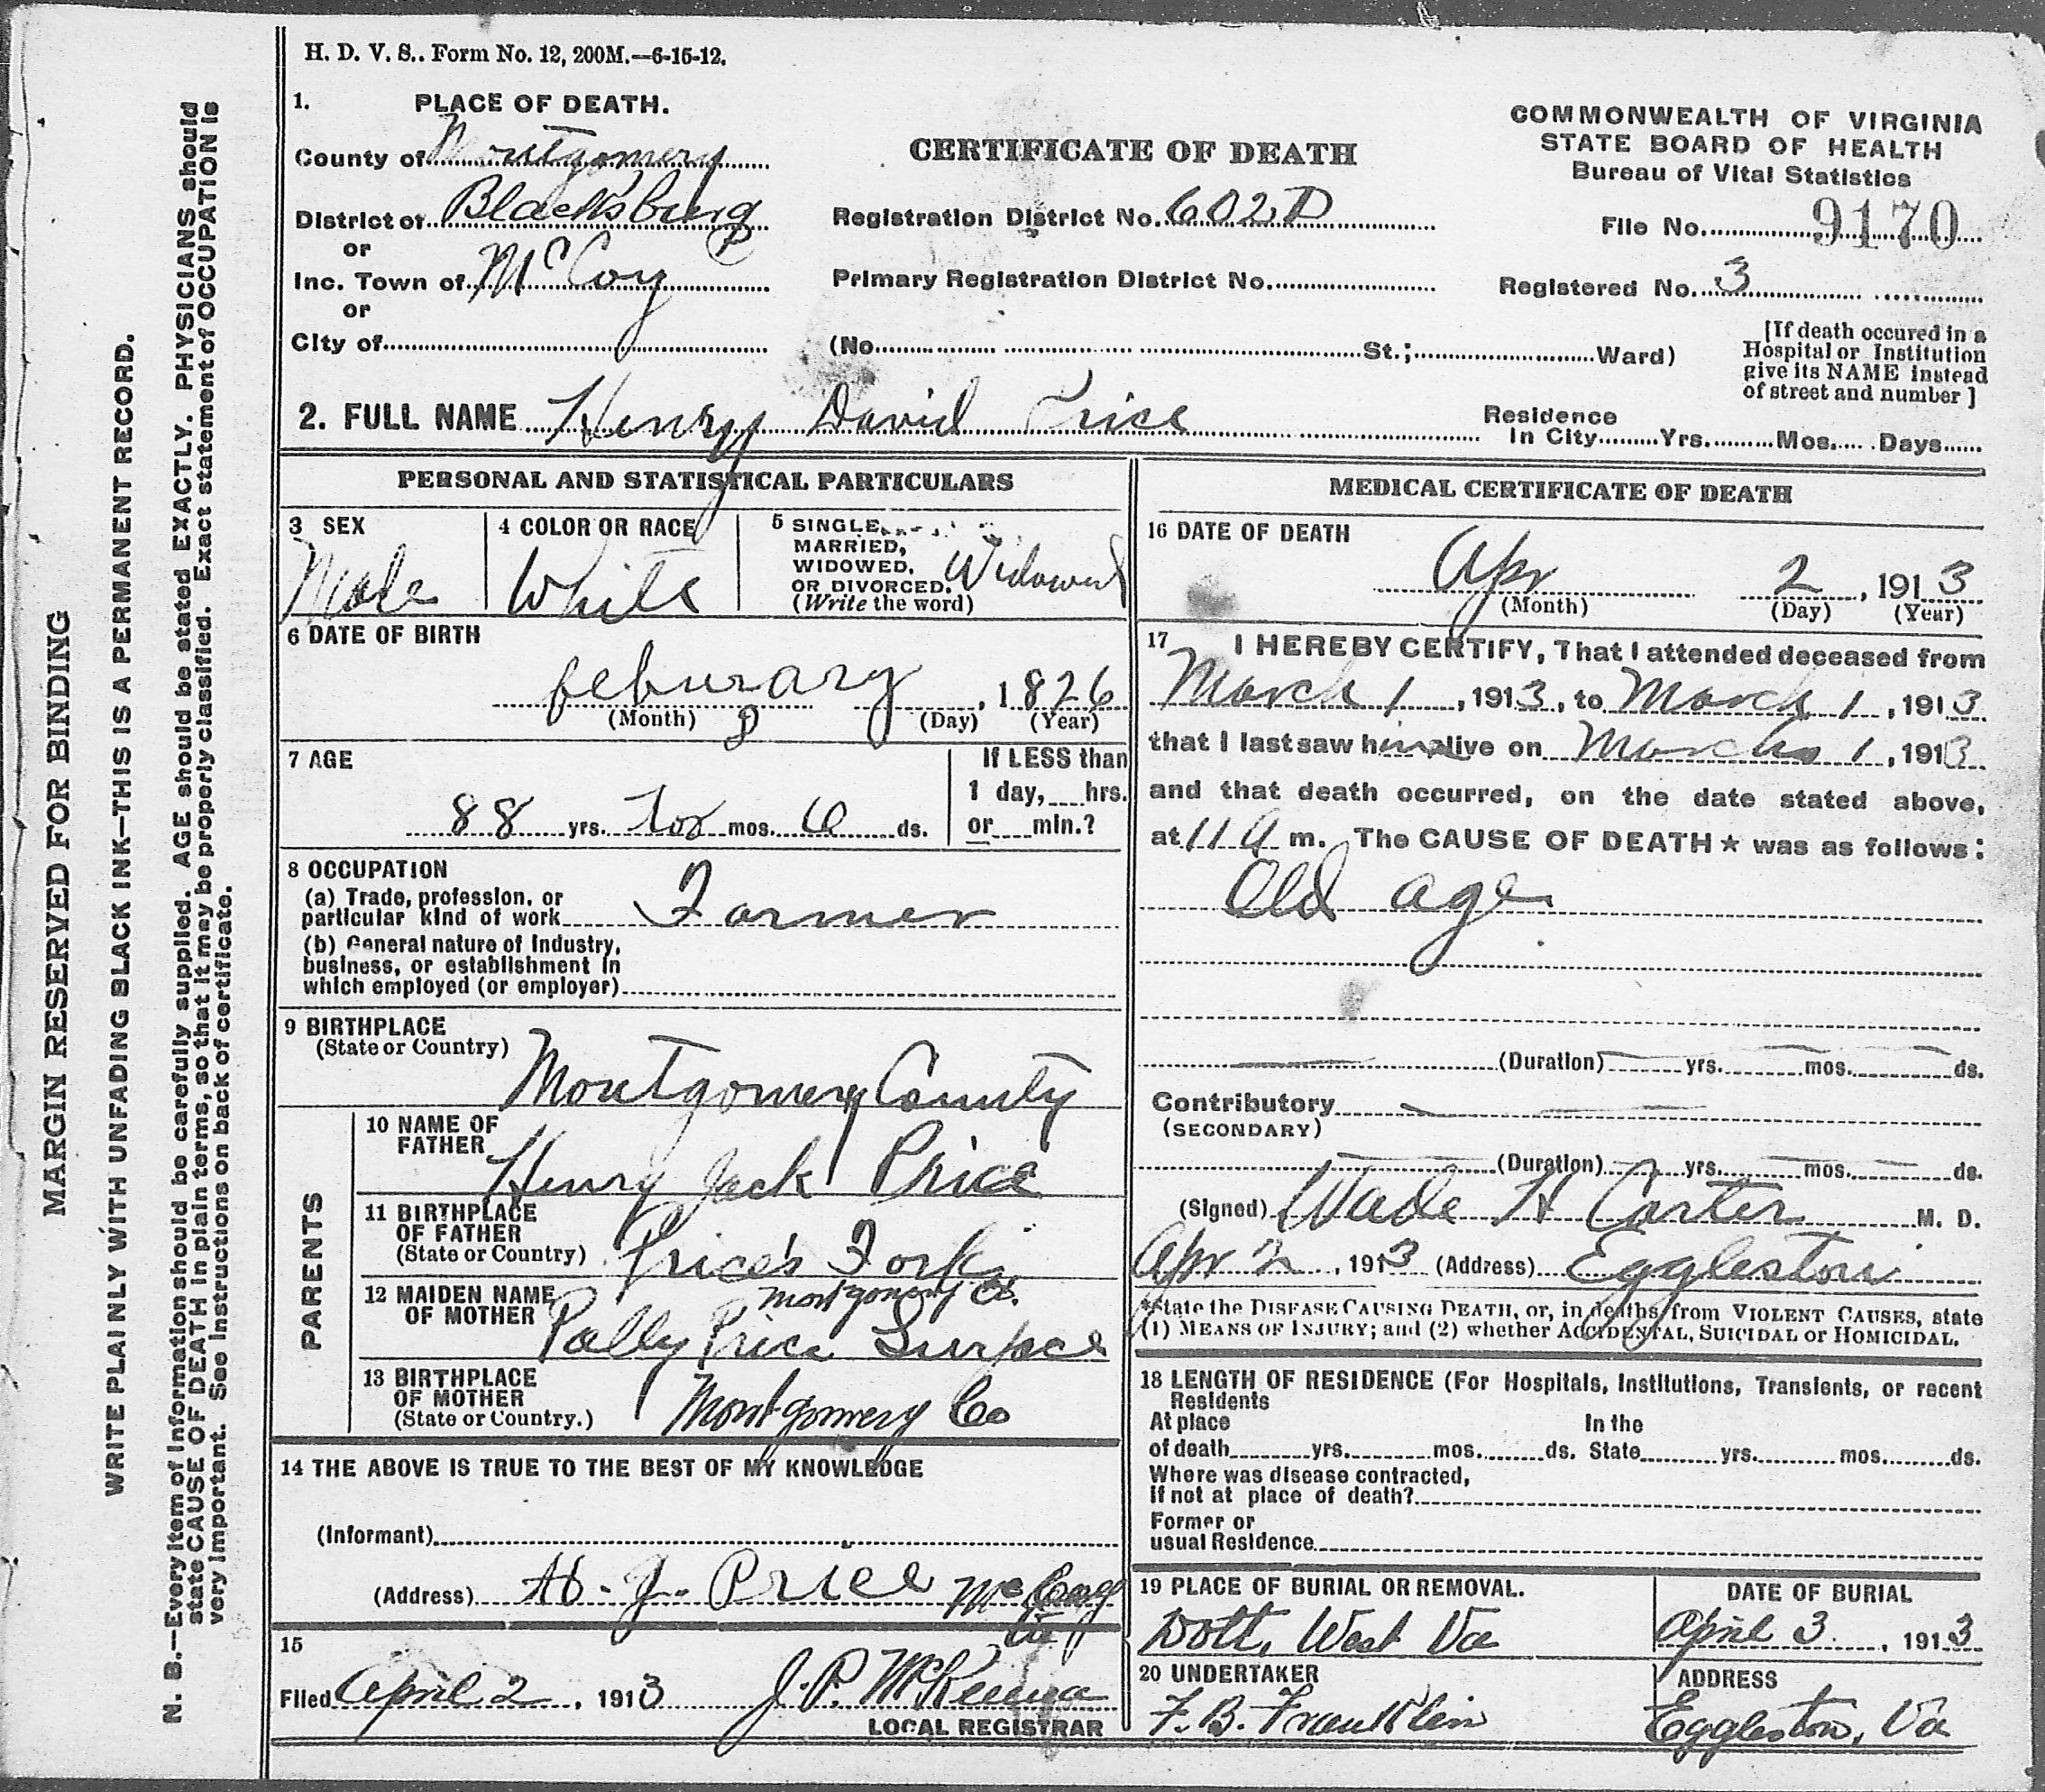 H. D. V. S.. Form No. 12, 200M.—6-15-12.
1. PLACE OF DEATH.
County of Montgomery
District of Blacksburg
or
Inc. Town of McCoy
or
City of
CERTIFICATE OF DEATH
Registration District No. 602 D
Primary Registration District No.
(No. St.; Ward)
COMMONWEALTH OF VIRGINIA
STATE BOARD OF HEALTH
Bureau of Vital Statistics
File No. 9170
Registered No. 3
[If death occured in a
Hospital or Institution
give its NAME instead
of street and number]
2. FULL NAME Henry David Price
Residence
In City Yrs. Mos. Days
PERSONAL AND STATISTICAL PARTICULARS
3 SEX
Male
4 COLOR OR RACE
White
5 SINGLE,
MARRIED,
WIDOWED,
OR DIVORCED.
(Write the word)
Widowed
6 DATE OF BIRTH
feburary , 1826
(Month) (Day) (Year)
7 AGE
88 yrs. mos. 6 ds.
If LESS than
1 day, hrs.
or min.?
8 OCCUPATION
(a) Trade, profession, or
particular kind of work Farmer
(b) General nature of Industry,
business, or establishment in
which employed (or employer)
9 BIRTHPLACE
(State or Country)
Montgomery County
PARENTS
10 NAME OF
FATHER
Henry Jack Price
11 BIRTHPLACE
OF FATHER
(State or Country) Price's Fork
Montgomery Co.
12 MAIDEN NAME
OF MOTHER Polly Price Surpace
13 BIRTHPLACE
OF MOTHER
(State or Country.) Montgomery Co
14 THE ABOVE IS TRUE TO THE BEST OF MY KNOWLEDGE
(Informant)
(Address) H. J. Price McCoy
15
Filed April 2, 1913 J. P. McKenna
LOCAL REGISTRAR
MEDICAL CERTIFICATE OF DEATH
16 DATE OF DEATH
Apr 2, 1913
(Month) (Day) (Year)
17 I HEREBY CERTIFY, That I attended deceased from
March 1, 1913, to March 1, 1913
that I last saw him alive on March 1, 1913
and that death occurred, on the date stated above,
at 11 A m. The CAUSE OF DEATH★ was as follows:
Old age
(Duration) yrs. mos. ds.
Contributory
(SECONDARY)
(Duration) yrs. mos. ds.
(Signed) Wade H Carter M. D.
Apr 2, 1913 (Address) Eggleston
*State the DISEASE CAUSING DEATH, or, in deaths from VIOLENT CAUSES, state
(1) MEANS OF INJURY; and (2) whether ACCIDENTAL, SUICIDAL or HOMICIDAL.
18 LENGTH OF RESIDENCE (For Hospitals, Institutions, Transients, or recent
Residents
At place In the
of death yrs. mos. ds. State yrs. mos. ds.
Where was disease contracted,
If not at place of death?
Former or
usual Residence
19 PLACE OF BURIAL OR REMOVAL.
Dott, West Va
DATE OF BURIAL
April 3, 1913
20 UNDERTAKER
F. B. Franklin
ADDRESS
Eggleston, Va
MARGIN RESERVED FOR BINDING
WRITE PLAINLY WITH UNFADING BLACK INK—THIS IS A PERMANENT RECORD.
N. B.—Every item of information should be carefully supplied. AGE should be stated EXACTLY. PHYSICIANS should
state CAUSE OF DEATH in plain terms, so that it may be properly classified. Exact statement of OCCUPATION is
very important. See instructions on back of certificate.